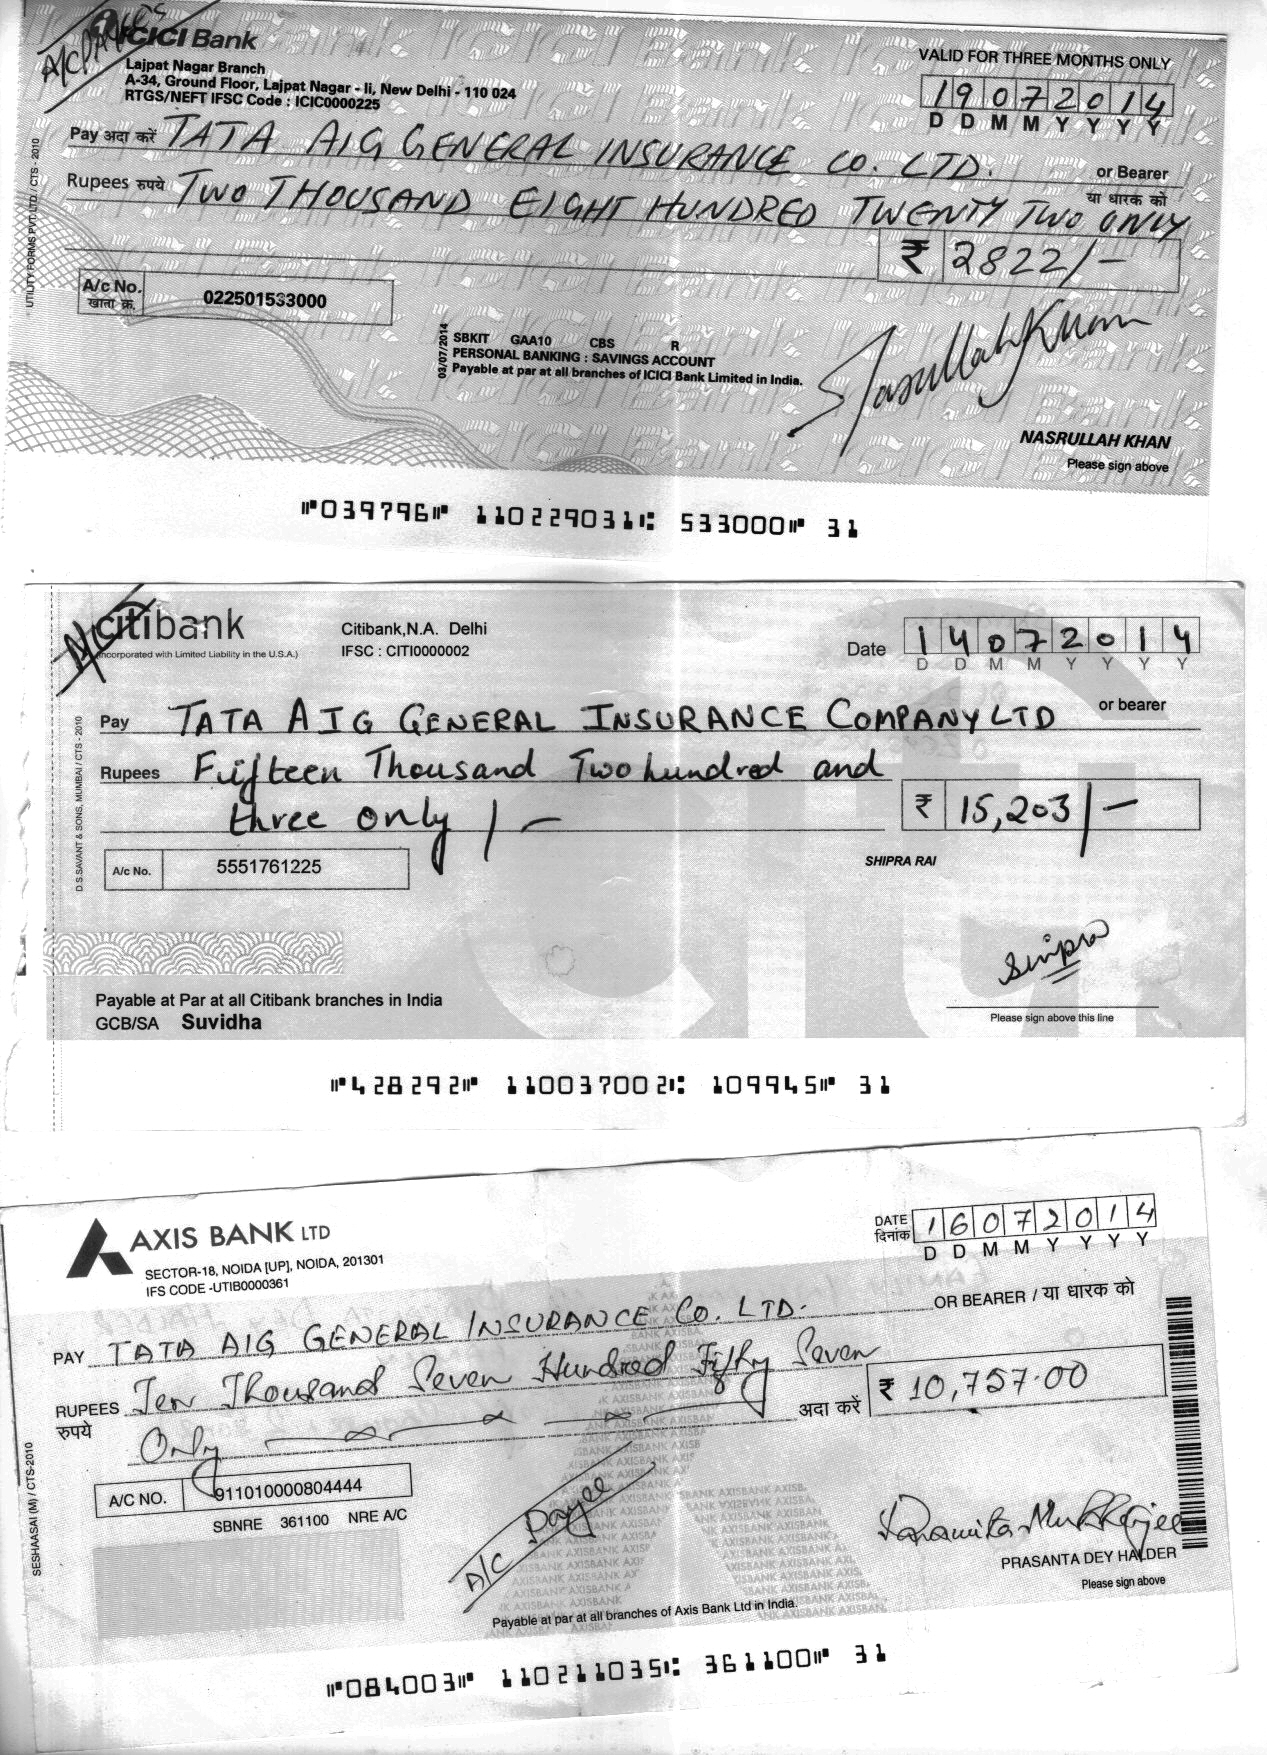 A/C PAYEES
ICICI Bank
Lajpat Nagar Branch
A-34, Ground Floor, Lajpat Nagar - Ii, New Delhi - 110 024
RTGS/NEFT IFSC Code : ICIC0000225
VALID FOR THREE MONTHS ONLY
19072014
D D M M Y Y Y Y
Pay अदा करें TATA AIG GENERAL INSURANCE CO. LTD. or Bearer
या धारक को
Rupees रुपये TWO THOUSAND EIGHT HUNDRED TWENTY TWO ONLY
₹ 2822/-
A/c No. 022501533000
खाता क्र.
UTILITY FORMS PVT. LTD / CTS - 2010
03/07/2014
SBKIT GAA10 CBS R
PERSONAL BANKING : SAVINGS ACCOUNT
Payable at par at all branches of ICICI Bank Limited in India.
Nasrullah Khan
NASRULLAH KHAN
Please sign above
⑈039796⑈ 110229031⑆ 533000⑈ 31
A/C
citibank
(Incorporated with Limited Liability in the U.S.A.)
Citibank,N.A. Delhi
IFSC : CITI0000002
Date 14072014
D D M M Y Y Y Y
Pay TATA AIG GENERAL INSURANCE COMPANY LTD or bearer
Rupees Fifteen Thousand Two hundred and
three only/-
₹ 15,203/-
D.S.SAVANT & SONS, MUMBAI / CTS - 2010
A/c No. 5551761225
SHIPRA RAI
Shipra
Payable at Par at all Citibank branches in India
GCB/SA Suvidha
Please sign above this line
⑈428292⑈ 110037002⑆ 109945⑈ 31
AXIS BANK LTD
SECTOR-18, NOIDA [UP], NOIDA, 201301
IFS CODE -UTIB0000361
DATE 16072014
दिनांक
D D M M Y Y Y Y
PAY TATA AIG GENERAL INSURANCE CO. LTD. OR BEARER / या धारक को
RUPEES Ten Thousand Seven Hundred Fifty Seven
रुपये Only
अदा करें ₹ 10,757.00
A/C NO. 911010000804444
SBNRE 361100 NRE A/C
SESHAASAI (M) / CTS-2010
A/C Payee
Paramita Mukherjee
PRASANTA DEY HALDER
Please sign above
Payable at par at all branches of Axis Bank Ltd in India.
⑈084003⑈ 110211035⑆ 361100⑈ 31